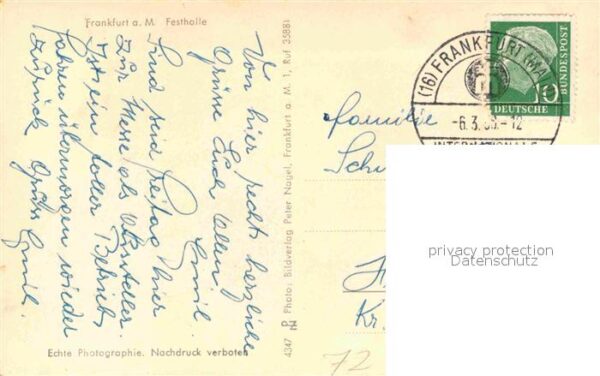 Frankfurt a. M. Festhalle
Von hier recht herzliche
Grüsse Euch Allen
Emil.
Sind seit Freitag hier
zur Messe als Aussteller.
Ist ein toller Betrieb
fahren übermorgen wieder
zurück Gruss
Emil.
Echte Photographie. Nachdruck verboten
4347 Photo: Bildverlag Peter Nagel, Frankfurt a. M. 1, Ruf 35881
(16) FRANKFURT (MAIN
-6.3. -12
INTERNATIONALE
DEUTSCHE
BUNDESPOST
10
Familie
Sch
Kr.
72
privacy protection
Datenschutz